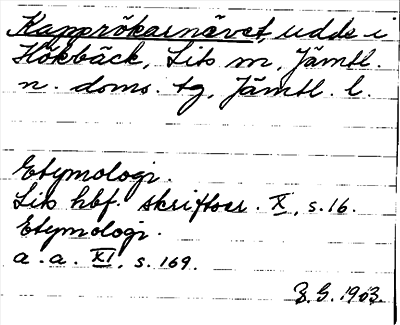 Kapprökarnävet, udde i
Hökbäck, Lits sn, Jämtl.
n. doms. tg, Jämtl. l.
Etymologi.
Lits hbf. skriftser. X, s. 16.
Etymologi.
a. a. XI, s. 169.
E. G. 1963.